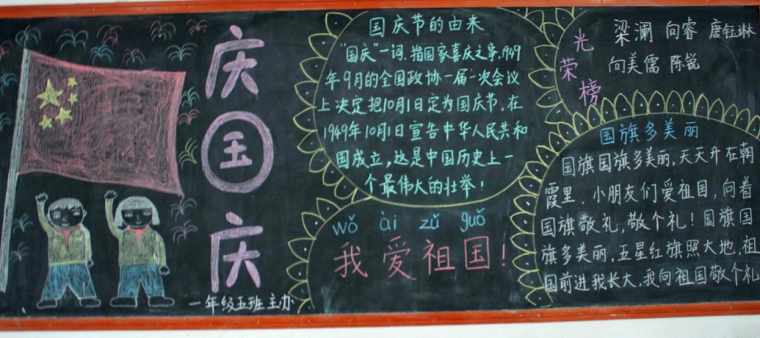 庆
国
庆
一年级五班主办
国庆节的由来
“国庆”一词,指国家喜庆之事,1949
年9月的全国政协一届一次会议
上决定把10月1日定为国庆节,在
1949年10月1日宣告中华人民共和
国成立,这是中国历史上一
个最伟大的壮举!
wǒ ài zǔ guó
我爱祖国!
光荣榜
梁澜 向睿 唐钰琳
向美儒 陈锐
国旗多美丽
国旗国旗多美丽,天天升在朝
霞里.小朋友们爱祖国,向着
国旗敬礼,敬个礼!国旗国
旗多美丽,五星红旗照大地,祖
国前进我长大,我向祖国敬个礼